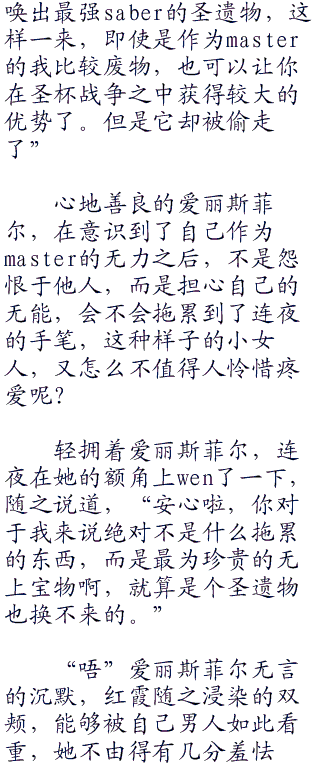 唤出最强saber的圣遗物，这
样一来，即使是作为master
的我比较废物，也可以让你
在圣杯战争之中获得较大的
优势了。但是它却被偷走
了”
心地善良的爱丽斯菲
尔，在意识到了自己作为
master的无力之后，不是怨
恨于他人，而是担心自己的
无能，会不会拖累到了连夜
的手笔，这种样子的小女
人，又怎么不值得人怜惜疼
爱呢？
轻拥着爱丽斯菲尔，连
夜在她的额角上wen了一下，
随之说道，“安心啦，你对
于我来说绝对不是什么拖累
的东西，而是最为珍贵的无
上宝物啊，就算是个圣遗物
也换不来的。”
“唔”爱丽斯菲尔无言
的沉默，红霞随之浸染的双
颊，能够被自己男人如此看
重，她不由得有几分羞怯